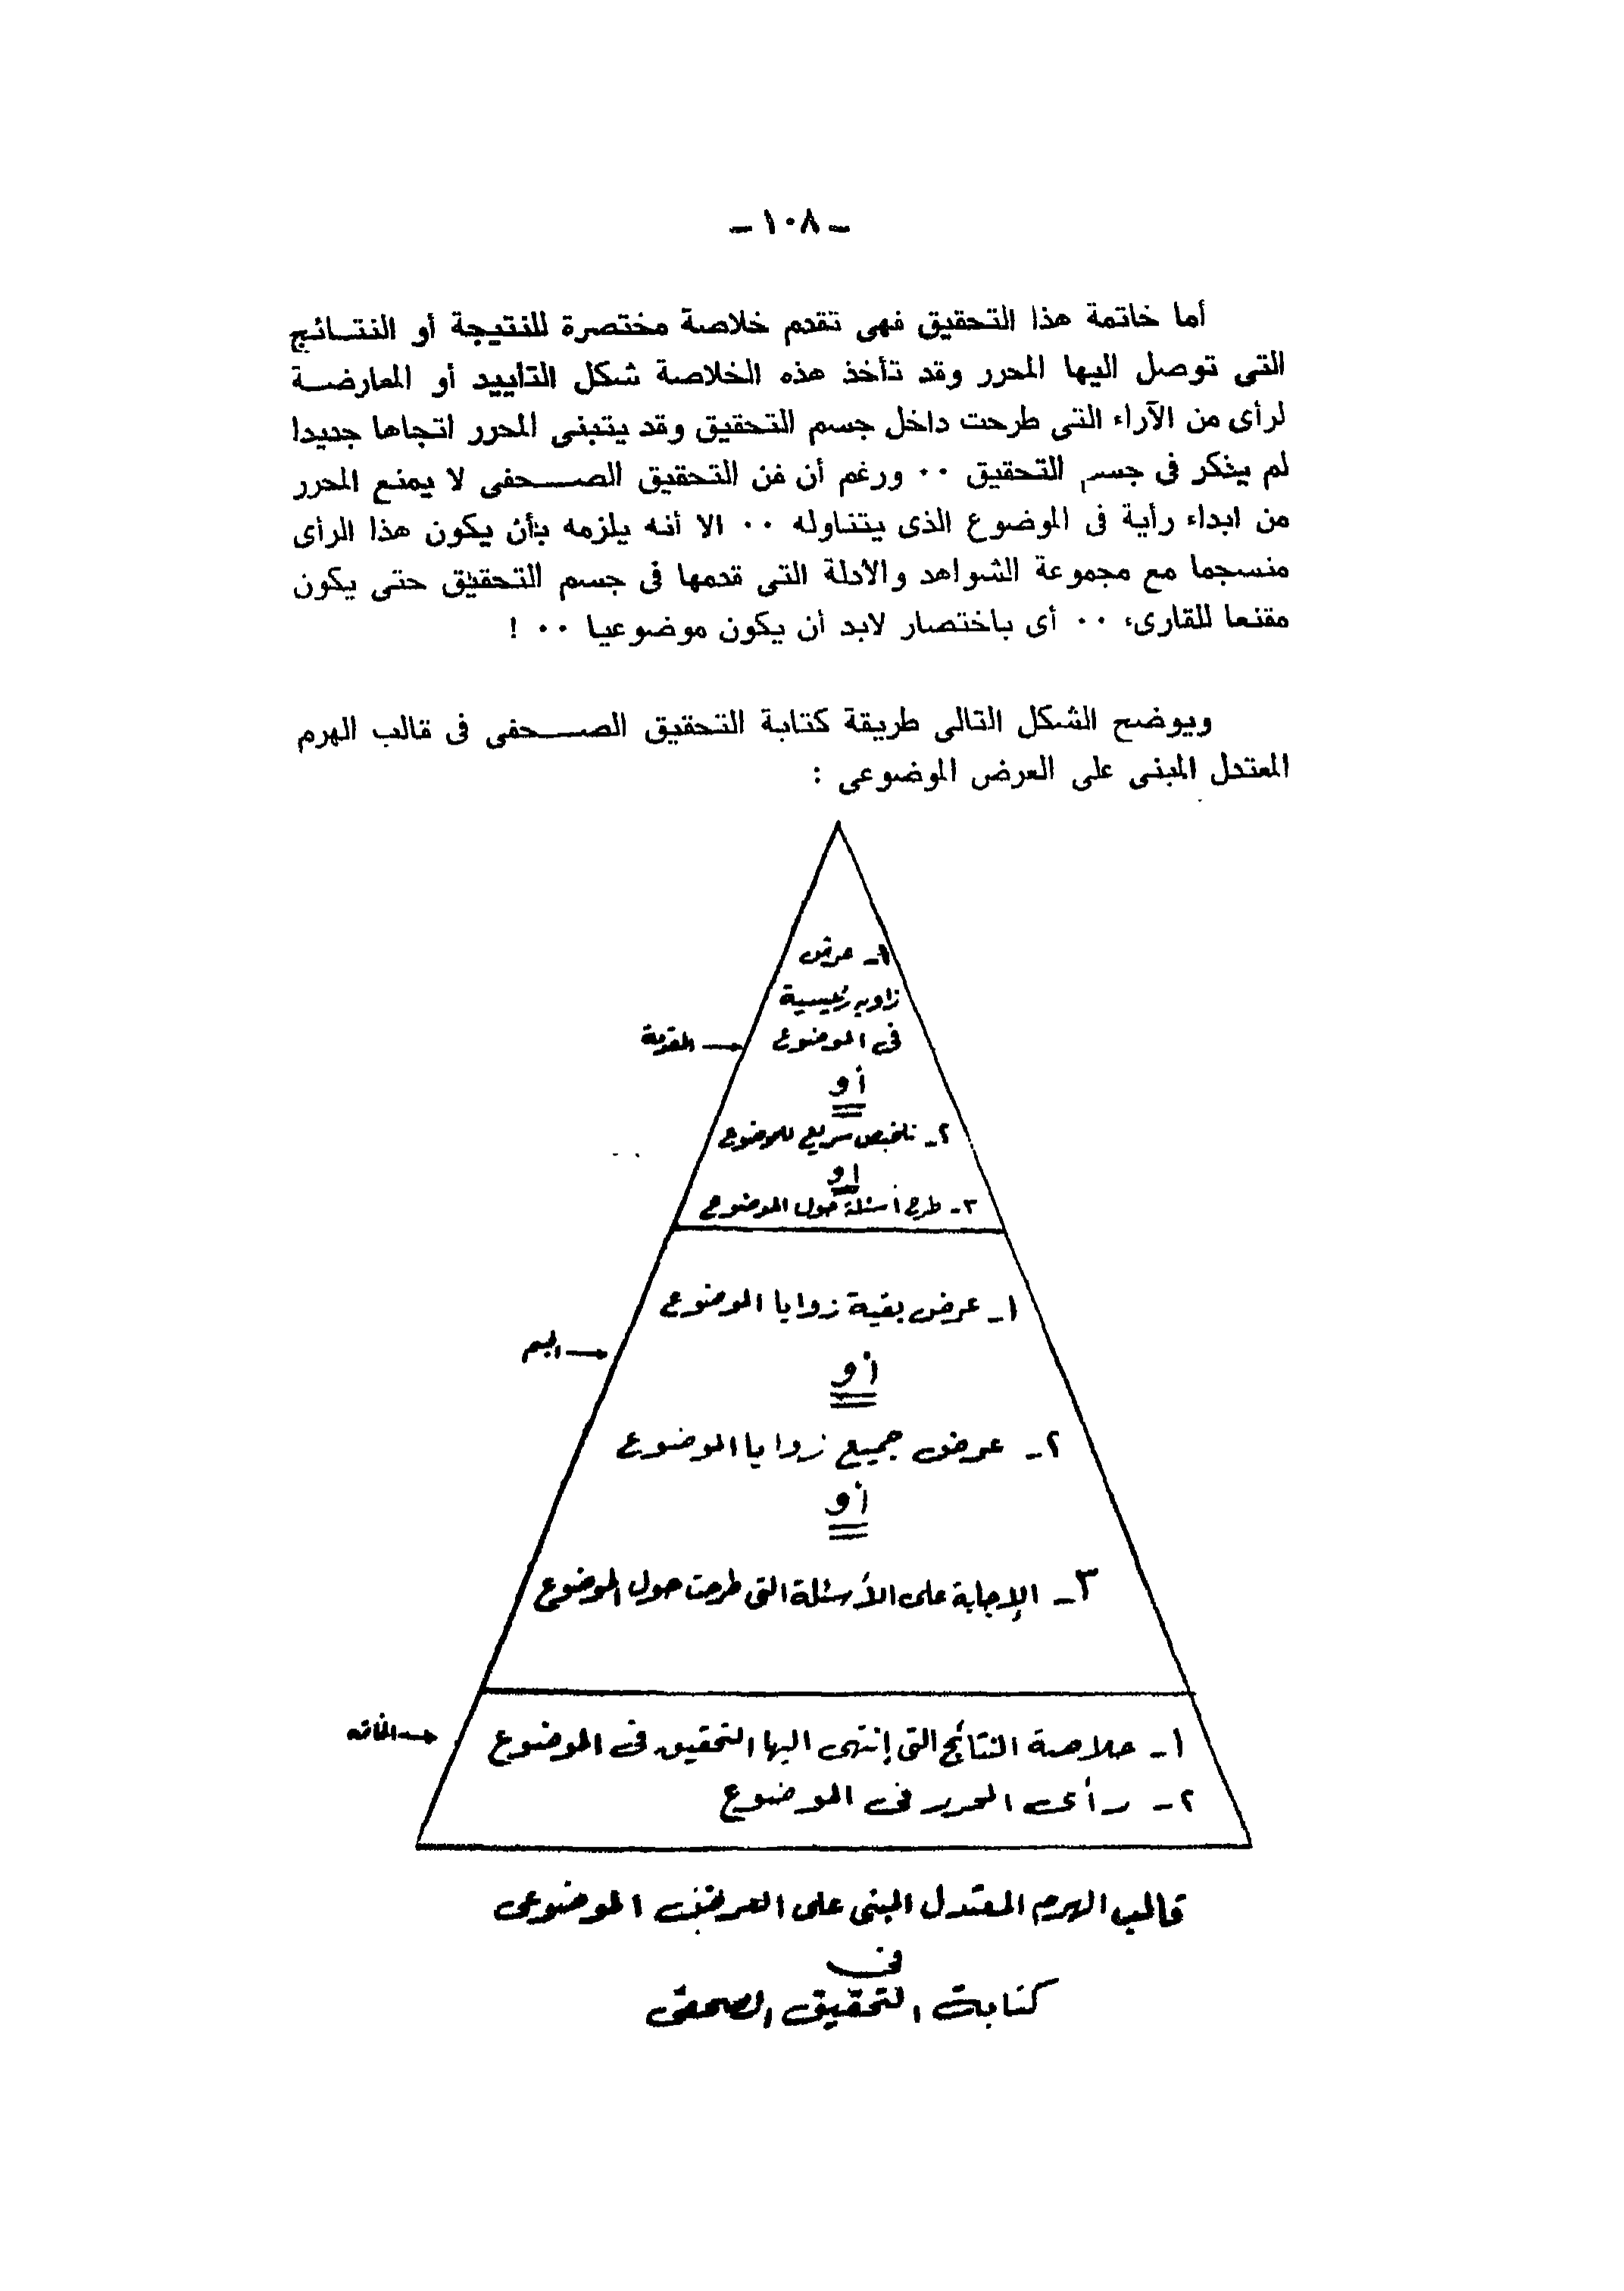 ـ ١٠٨ ـ
أما خاتمة هذا التحقيق فهى تقدم خلاصة مختصرة للنتيجة أو النتـائج
التى توصل اليها المحرر وقد تأخذ هذه الخلاصة شكل التأييد أو المعارضـة
لرأى من الآراء التى طرحت داخل جسم التحقيق وقد يتبنى المحرر اتجاها جديدا
لم يذكر فى جسم التحقيق ٠٠ ورغم أن فن التحقيق الصـحفى لا يمنع المحرر
من ابداء رأية فى الموضوع الذى يتناوله ٠٠ الا أنه يلزمه بأن يكون هذا الرأى
منسجما مع مجموعة الشواهد والأدلة التى قدمها فى جسم التحقيق حتى يكون
مقنعا للقارىء ٠٠ أى باختصار لابد أن يكون موضوعيا ٠٠ !
ويوضح الشكل التالى طريقة كتابة التحقيق الصـحفى فى قالب الهرم
المعتدل المبنى على العرض الموضوعى :
١ـ عرض
زاوية رئيسية
فى الموضوع
المقدمة
أو
٢ـ تلخيص سريع للموضوع
او
٣ـ طرح أسئلة حول الموضوع
١ـ عرض بقية زوايا الموضوع
الجسم
أو
٢ـ عرض جميع زوايا الموضوع
أو
٣ـ الإجابة على الأسئلة التى طرحت حول الموضوع
الخاتمه
١ـ خلاصة النتائج التى إنتهى اليها التحقيق فى الموضوع
٢ـ رأى المحرر فى الموضوع
قالب الهرم المعتدل المبنى على العرض الموضوعى
فى
كتابة التحقيق الصحفى